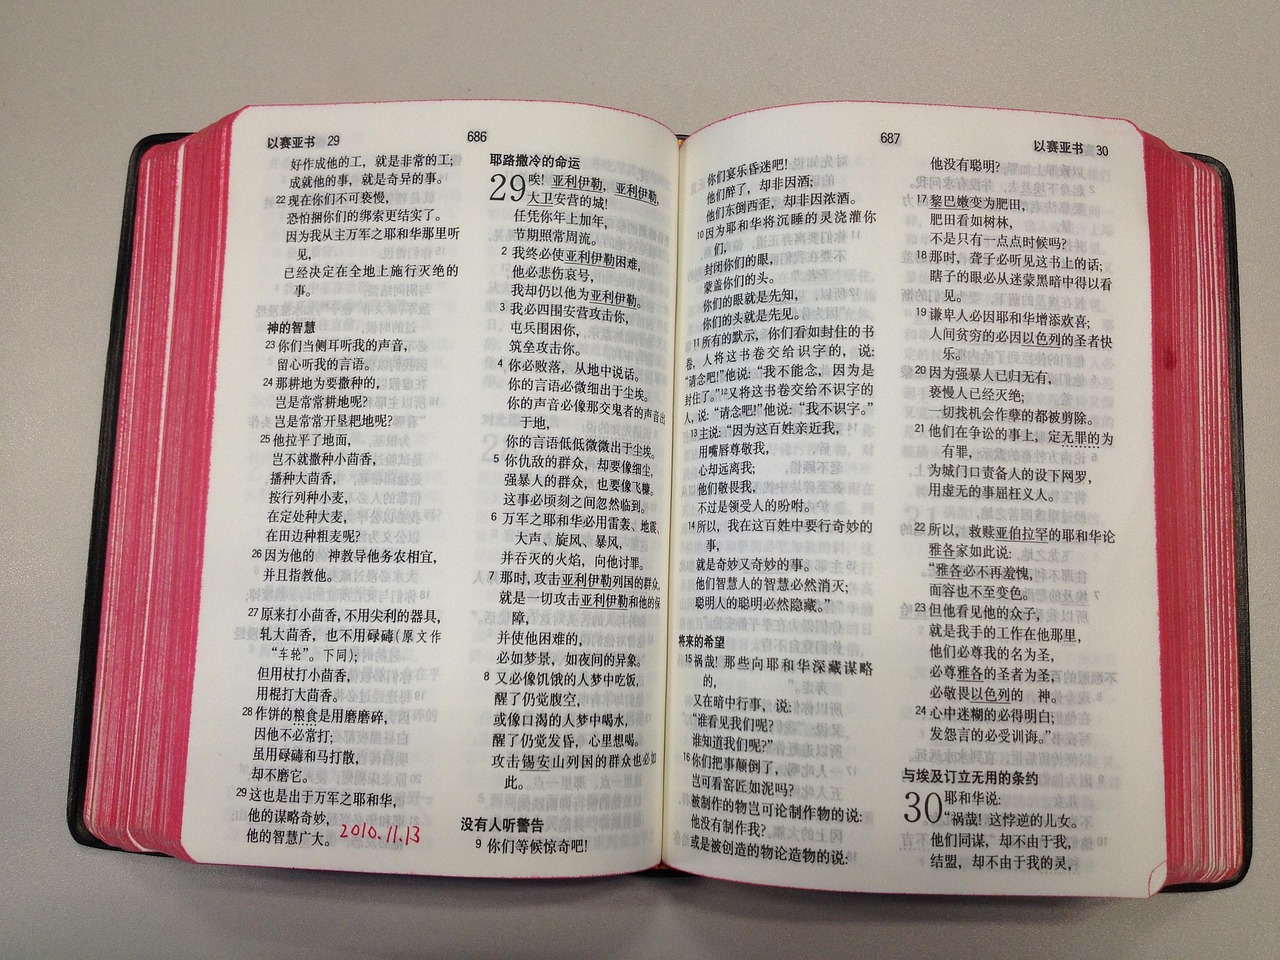 以赛亚书 29
686
好作成他的工，就是非常的工；
成就他的事，就是奇异的事。
22 现在你们不可亵慢，
恐怕捆你们的绑索更结实了。
因为我从主万军之耶和华那里听
见，
已经决定在全地上施行灭绝的
事。
神的智慧
23 你们当侧耳听我的声音，
留心听我的言语。
24 那耕地为要撒种的，
岂是常常耕地呢？
岂是常常开垦耙地呢？
25 他拉平了地面，
岂不就撒种小茴香，
播种大茴香，
按行列种小麦，
在定处种大麦，
在田边种粗麦呢？
26 因为他的 神教导他务农相宜，
并且指教他。
27 原来打小茴香，不用尖利的器具，
轧大茴香，也不用碌碡（原文作
“车轮”。下同）；
但用杖打小茴香，
用棍打大茴香。
28 作饼的粮食是用磨磨碎，
因他不必常打；
虽用碌碡和马打散，
却不磨它。
29 这也是出于万军之耶和华，
他的谋略奇妙，
他的智慧广大。 2010.11.13
耶路撒冷的命运
29 唉！亚利伊勒，亚利伊勒，
大卫安营的城！
任凭你年上加年，
节期照常周流。
2 我终必使亚利伊勒困难，
他必悲伤哀号，
我却仍以他为亚利伊勒。
3 我必四围安营攻击你，
屯兵围困你，
筑垒攻击你。
4 你必败落，从地中说话。
你的言语必微细出于尘埃。
你的声音必像那交鬼者的声音出
于地，
你的言语低低微微出于尘埃。
5 你仇敌的群众，却要像细尘，
强暴人的群众，也要像飞糠。
这事必顷刻之间忽然临到。
6 万军之耶和华必用雷轰、地震、
大声、旋风、暴风，
并吞灭的火焰，向他讨罪。
7 那时，攻击亚利伊勒列国的群众，
就是一切攻击亚利伊勒和他的保
障，
并使他困难的，
必如梦景，如夜间的异象。
8 又必像饥饿的人梦中吃饭，
醒了仍觉腹空，
或像口渴的人梦中喝水，
醒了仍觉发昏，心里想喝。
攻击锡安山列国的群众也必如
此。
没有人听警告
9 你们等候惊奇吧！
687
以赛亚书 30
你们宴乐昏迷吧！
他们醉了，却非因酒；
他们东倒西歪，却非因浓酒。
10 因为耶和华将沉睡的灵浇灌你
们，
封闭你们的眼，
蒙盖你们的头。
你们的眼就是先知，
你们的头就是先见。
11 所有的默示，你们看如封住的书
卷，人将这书卷交给识字的，说：
“请念吧！”他说：“我不能念，因为是
封住了。”12 又将这书卷交给不识字的
人，说：“请念吧！”他说：“我不识字。”
13 主说：“因为这百姓亲近我，
用嘴唇尊敬我，
心却远离我；
他们敬畏我，
不过是领受人的吩咐。
14 所以，我在这百姓中要行奇妙的
事，
就是奇妙又奇妙的事。
他们智慧人的智慧必然消灭；
聪明人的聪明必然隐藏。”
将来的希望
15 祸哉！那些向耶和华深藏谋略
的，
又在暗中行事，说：
“谁看见我们呢？
谁知道我们呢？”
16 你们把事颠倒了，
岂可看窑匠如泥吗？
被制作的物岂可论制作物的说：
他没有制作我？
或是被创造的物论造物的说：
他没有聪明？
17 黎巴嫩变为肥田，
肥田看如树林，
不是只有一点点时候吗？
18 那时，聋子必听见这书上的话；
瞎子的眼必从迷蒙黑暗中得以看
见。
19 谦卑人必因耶和华增添欢喜；
人间贫穷的必因以色列的圣者快
乐。
20 因为强暴人已归无有，
亵慢人已经灭绝；
一切找机会作孽的都被剪除。
21 他们在争讼的事上，定无罪的为
有罪，
为城门口责备人的设下网罗，
用虚无的事屈枉义人。
22 所以，救赎亚伯拉罕的耶和华论
雅各家如此说：
“雅各必不再羞愧，
面容也不至变色。
23 但他看见他的众子，
就是我手的工作在他那里，
他们必尊我的名为圣，
必尊雅各的圣者为圣，
必敬畏以色列的 神。
24 心中迷糊的必得明白；
发怨言的必受训诲。”
与埃及订立无用的条约
30 耶和华说：
“祸哉！这悖逆的儿女。
他们同谋，却不由于我，
结盟，却不由于我的灵，